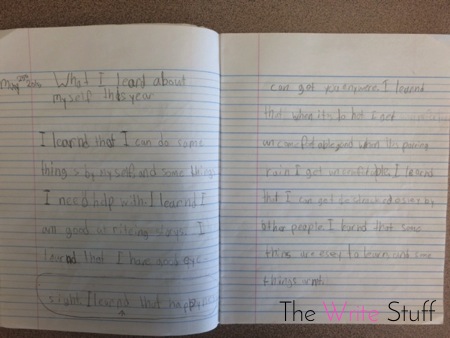 What I leant about
myself this year
I learnd that I can do some
things by my self and some things
I need help with. I learnd I
am good at storys. I
learnd that I have good eye
sight. I learnd that happyness
can get I learnd
that when its to hot I get
and when its
rain I get I learnd
that I can get by
other people. I learnd that some
things are easy to learn and some
things arnt.
The Write Stuff